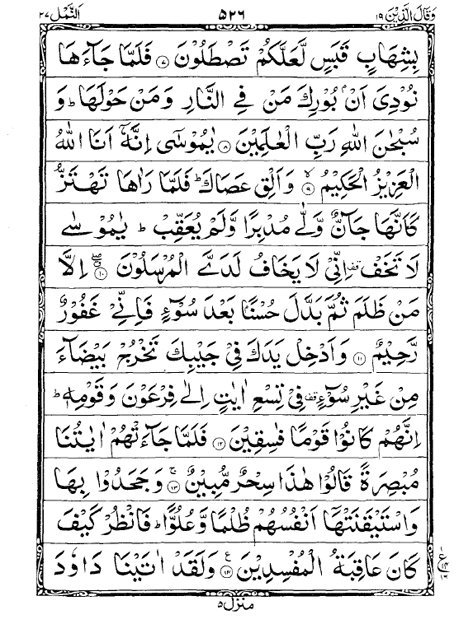 وَقَالَ الَّذِيْنَ ١٩ ٥٢٦ اَلنَّمْل ٢٧
بِشِهَابٍ قَبَسٍ لَّعَلَّكُمْ تَصْطَلُوْنَ ۷ فَلَمَّا جَآءَهَا
نُوْدِىَ اَنْۢ بُوْرِكَ مَنْ فِى النَّارِ وَمَنْ حَوْلَهَا ؕ وَ
سُبْحٰنَ اللّٰهِ رَبِّ الْعٰلَمِيْنَ ۸ يٰمُوْسٰٓى اِنَّهٗۤ اَنَا اللّٰهُ
الْعَزِيْزُ الْحَكِيْمُ ۙ ۹ وَاَلْقِ عَصَاكَ ؕ فَلَمَّا رَاٰهَا تَهْتَزُّ
كَاَنَّهَا جَآنٌّ وَّلّٰى مُدْبِرًا وَّلَمْ يُعَقِّبْ ؕ يٰمُوْسٰى
لَا تَخَفْ اِنِّىْ لَا يَخَافُ لَدَىَّ الْمُرْسَلُوْنَ ۱۰ اِلَّا
مَنْ ظَلَمَ ثُمَّ بَدَّلَ حُسْنًۢا بَعْدَ سُوْٓءٍ فَاِنِّىْ غَفُوْرٌ
رَّحِيْمٌ ۱۱ وَاَدْخِلْ يَدَكَ فِىْ جَيْبِكَ تَخْرُجْ بَيْضَآءَ
مِنْ غَيْرِ سُوْٓءٍ فِىْ تِسْعِ اٰيٰتٍ اِلٰى فِرْعَوْنَ وَقَوْمِهٖ ؕ
اِنَّهُمْ كَانُوْا قَوْمًا فٰسِقِيْنَ ۱۲ فَلَمَّا جَآءَتْهُمْ اٰيٰتُنَا
مُبْصِرَةً قَالُوْا هٰذَا سِحْرٌ مُّبِيْنٌ ۚ ۱۳ وَجَحَدُوْا بِهَا
وَاسْتَيْقَنَتْهَاۤ اَنْفُسُهُمْ ظُلْمًا وَّعُلُوًّا ؕ فَانْظُرْ كَيْفَ
كَانَ عَاقِبَةُ الْمُفْسِدِيْنَ ۱۴ وَلَقَدْ اٰتَيْنَا دَاوٗدَ
منزل ٥